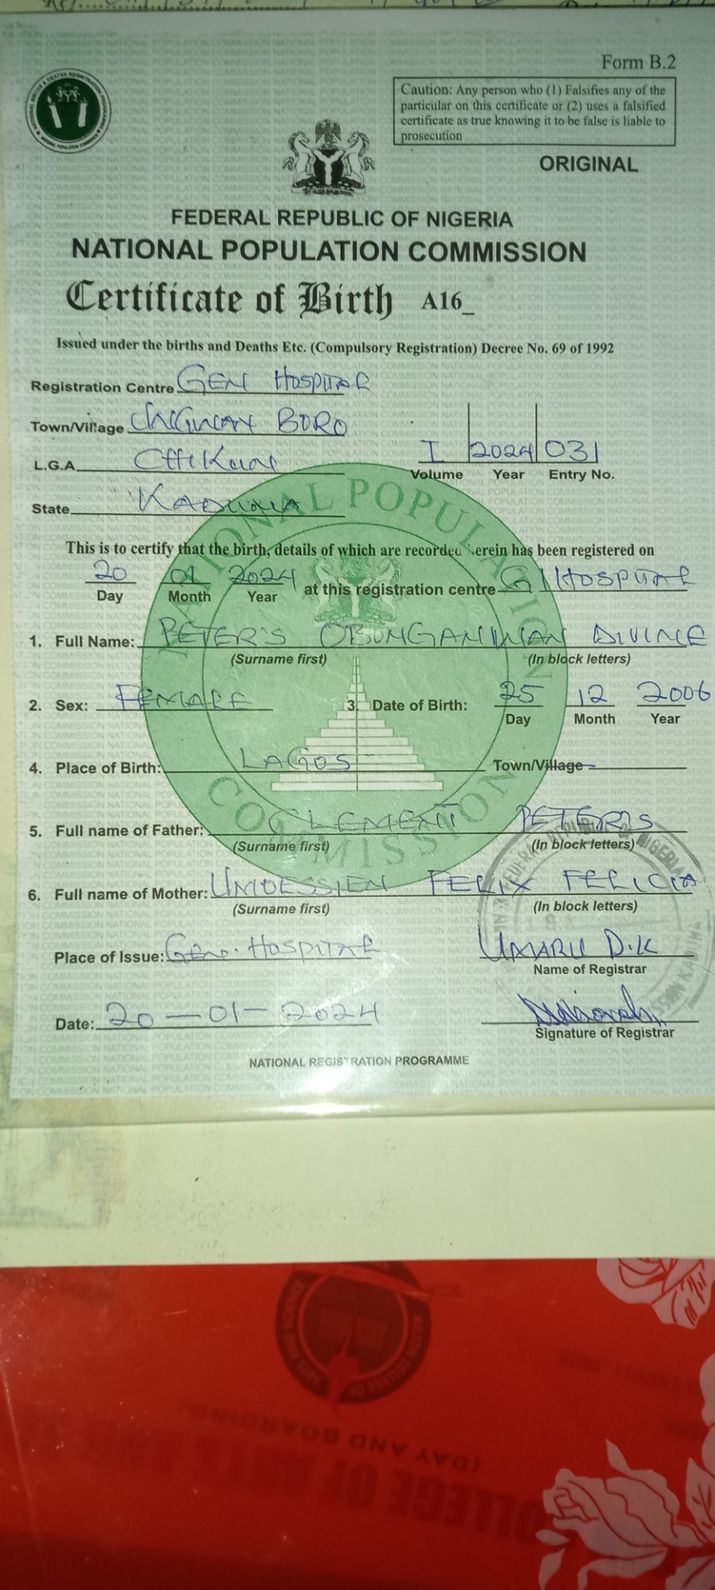 Form B.2
Caution: Any person who (1) Falsifies any of the
particular on this certificate or (2) uses a falsified
certificate as true knowing it to be false is liable to
prosecution
ORIGINAL
FEDERAL REPUBLIC OF NIGERIA
NATIONAL POPULATION COMMISSION
Certificate of Birth A16_
Issued under the births and Deaths Etc. (Compulsory Registration) Decree No. 69 of 1992
Registration Centre GEN HOSPITAL
Town/Village BORO
L.G.A
I 2024 031
Volume Year Entry No.
State KADUNA
This is to certify that the birth, details of which are recorded herein has been registered on
20 01 2024 at this registration centre G HOSPITAL
Day Month Year
1. Full Name: PETER'S DIVINE
(Surname first) (In block letters)
2. Sex: FEMALE 3 Date of Birth: 25 12 2006
Day Month Year
4. Place of Birth: LAGOS Town/Village
5. Full name of Father: CLEMENT PETERS
(Surname first) (In block letters)
6. Full name of Mother: UMOESSIEN FELIX FELICIA
(Surname first) (In block letters)
Place of Issue: GEN. HOSPITAL UMARU D.K
Name of Registrar
Date: 20-01-2024
Signature of Registrar
NATIONAL REGISTRATION PROGRAMME
NATIONAL POPULATION COMMISSION
(DAY AND BOARDING)